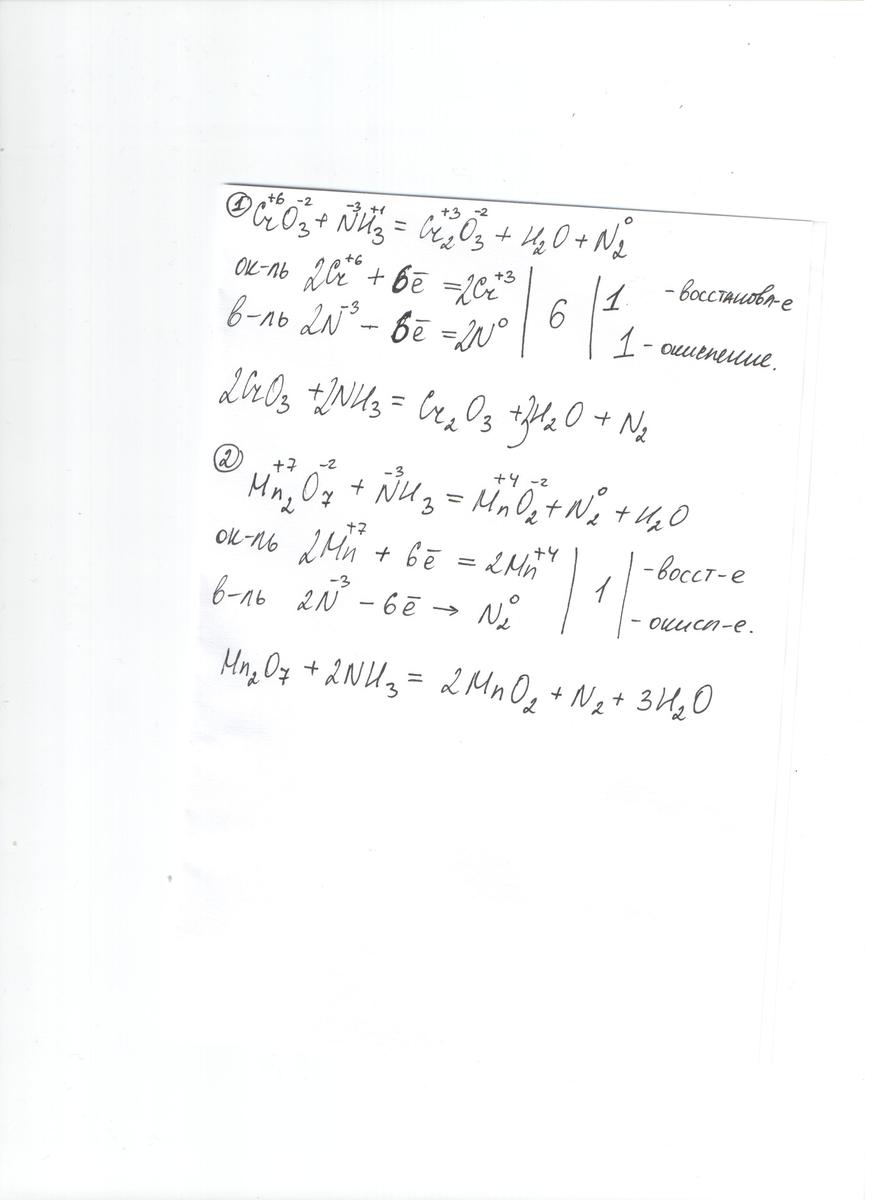 ① Cr⁺⁶O₃⁻² + N⁻³H₃⁺¹ = Cr₂⁺³O₃⁻² + H₂O + N₂⁰
ок-ль 2Cr⁺⁶ + 6ē = 2Cr⁺³ | 6 | 1 - восстановл-е
в-ль 2N⁻³ - 6ē = 2N⁰ | | 1 - окисление.
2CrO₃ + 2NH₃ = Cr₂O₃ + 3H₂O + N₂
② Mn₂⁺⁷O₇⁻² + N⁻³H₃ = Mn⁺⁴O₂⁻² + N₂⁰ + H₂O
ок-ль 2Mn⁺⁷ + 6ē = 2Mn⁺⁴ | 1 | - восст-е
в-ль 2N⁻³ - 6ē → N₂⁰ | | - окисл-е.
Mn₂O₇ + 2NH₃ = 2MnO₂ + N₂ + 3H₂O